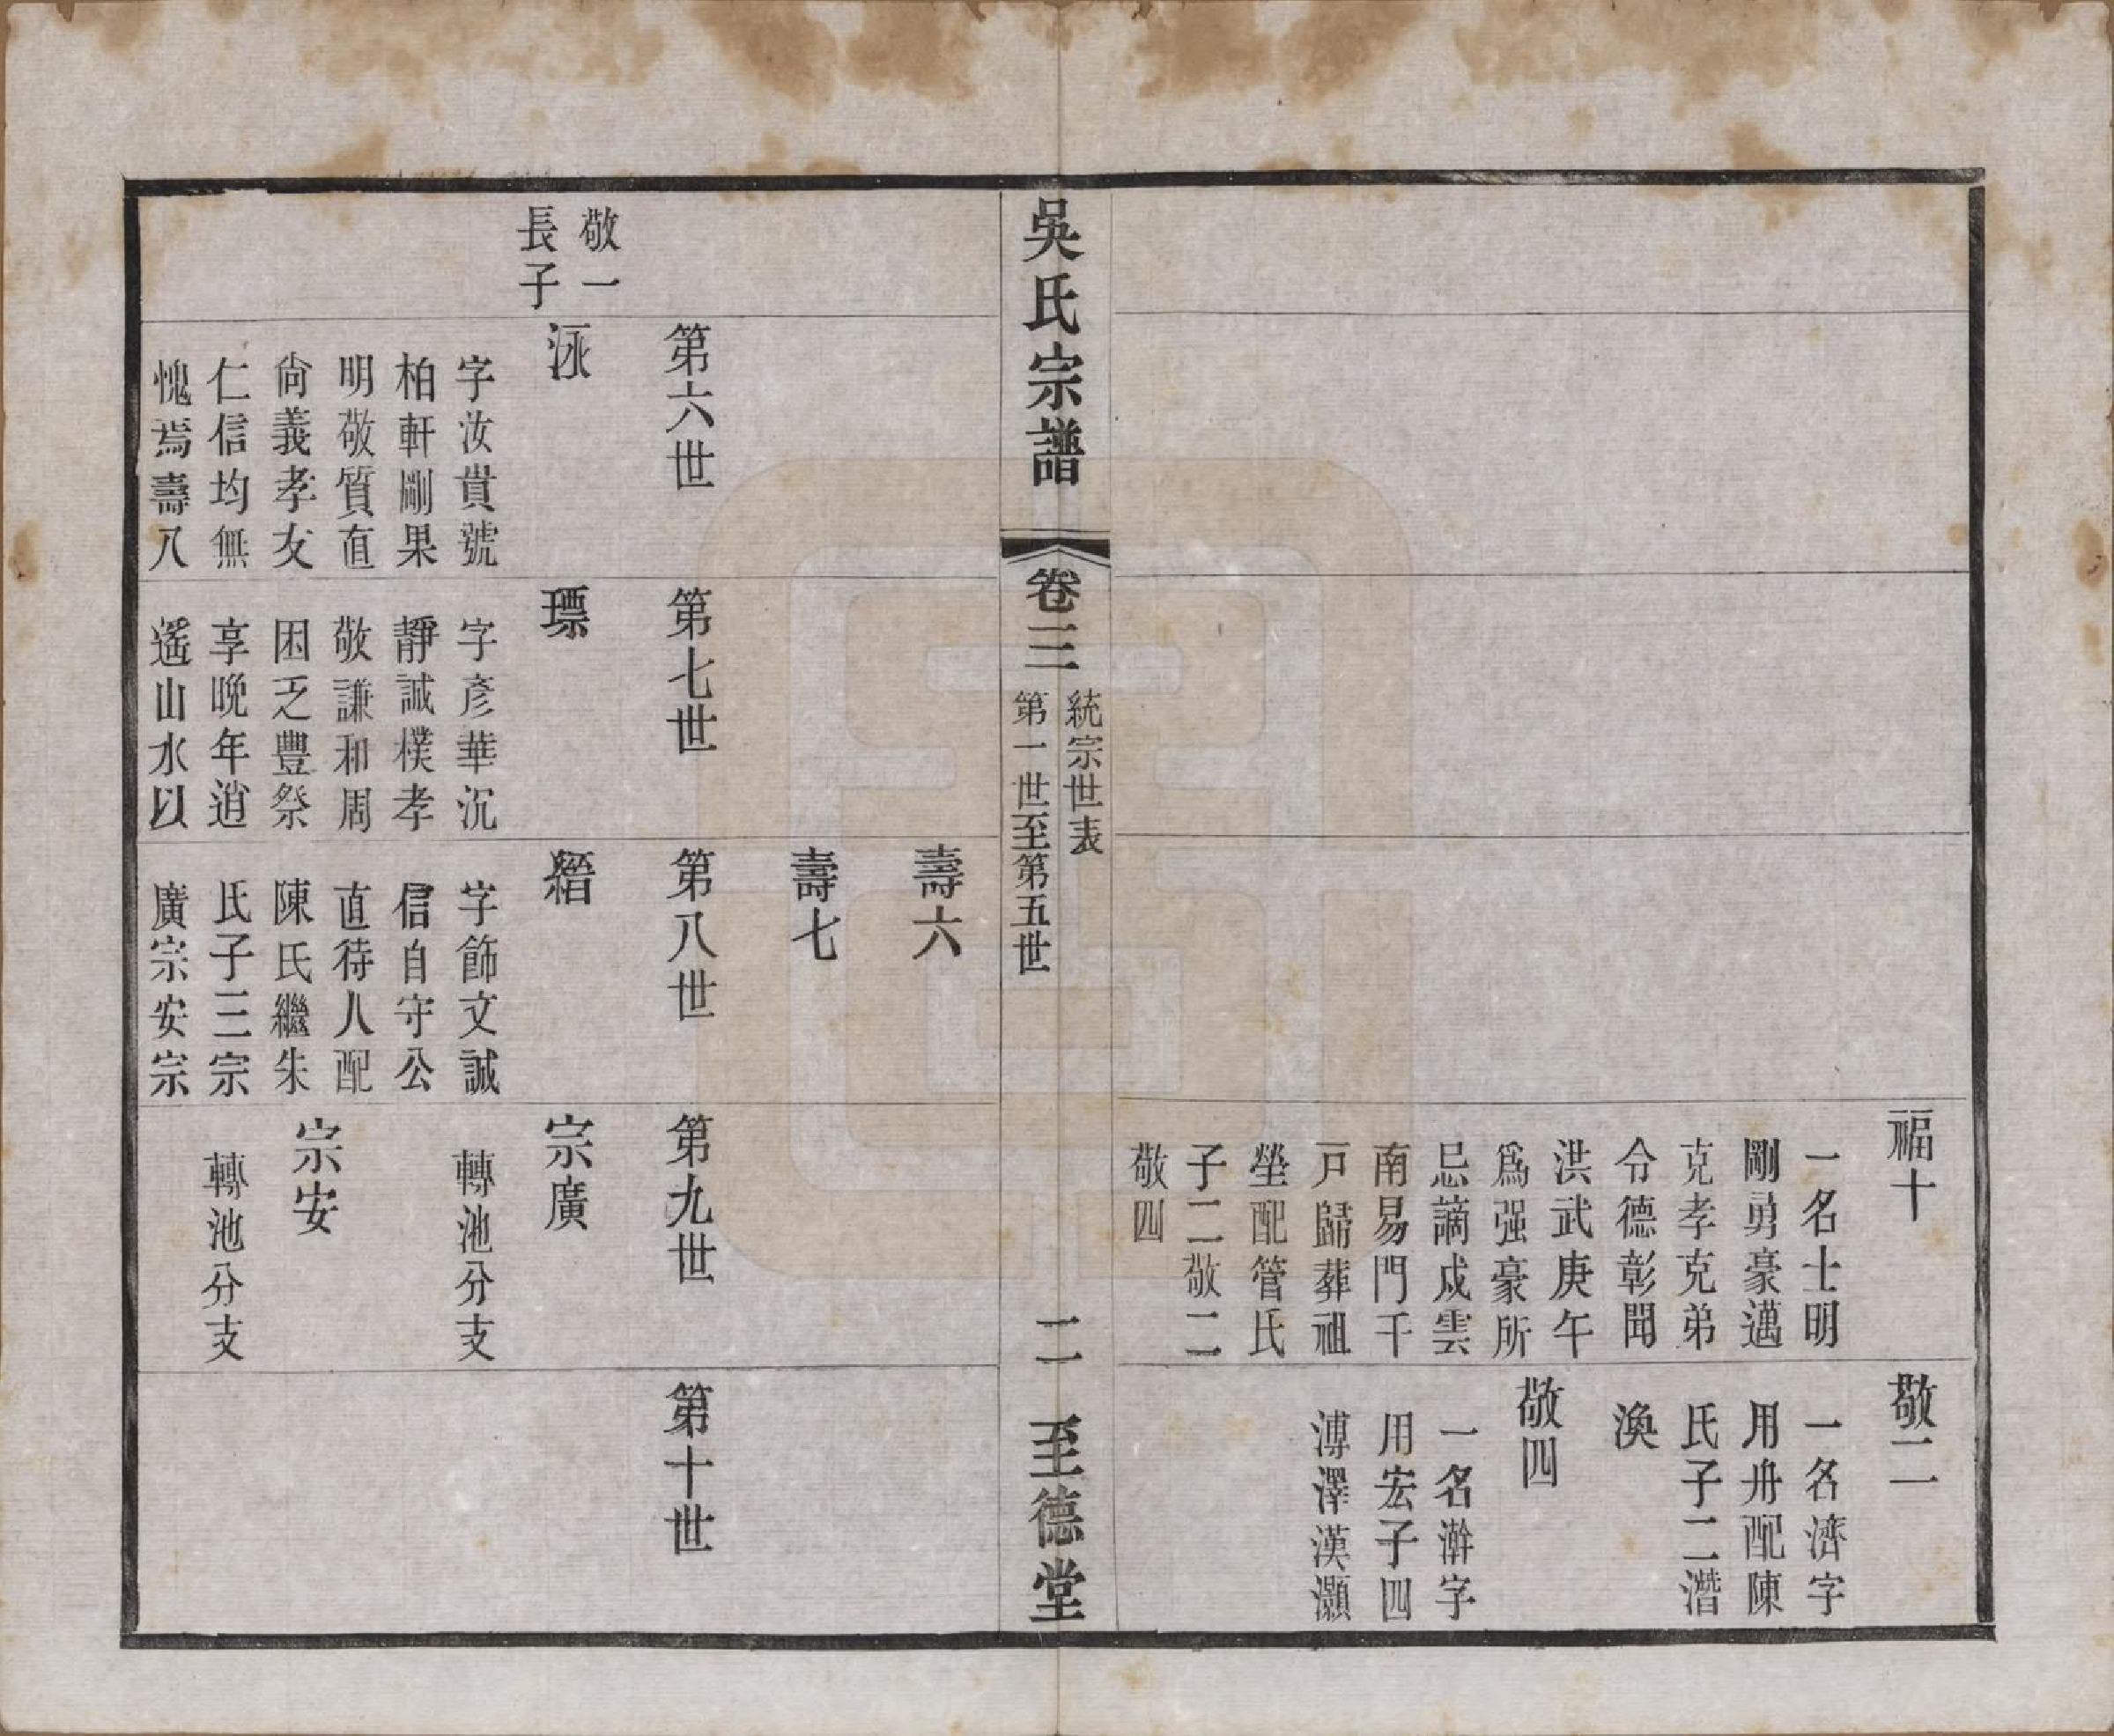 福十
一名士明
剛勇豪邁
克孝克弟
令德彰聞
洪武庚午
爲强豪所
忌謫戍雲
南易門千
戸歸葬祖
塋配管氏
子二敬二
敬四
敬二
一名濟字
用舟配陳
氏子二潛
渙
敬四
一名澣字
用宏子四
溥澤漢灝
吳氏宗譜
卷三
統宗世表
第一世至第五世
二
至德堂
壽六
壽七
第六世
第七世
第八世
第九世
第十世
敬一
長子
泳
字汝貴號
柏軒剛果
明敬質直
尙義孝友
仁信均無
愧焉壽八
瑮
字彥華沉
靜誠樸孝
敬謙和周
困乏豐祭
享晚年逍
遙山水以
縉
字飾文誠
信自守公
直待人配
陳氏繼朱
氏子三宗
廣宗安宗
宗廣
轉池分支
宗安
轉池分支